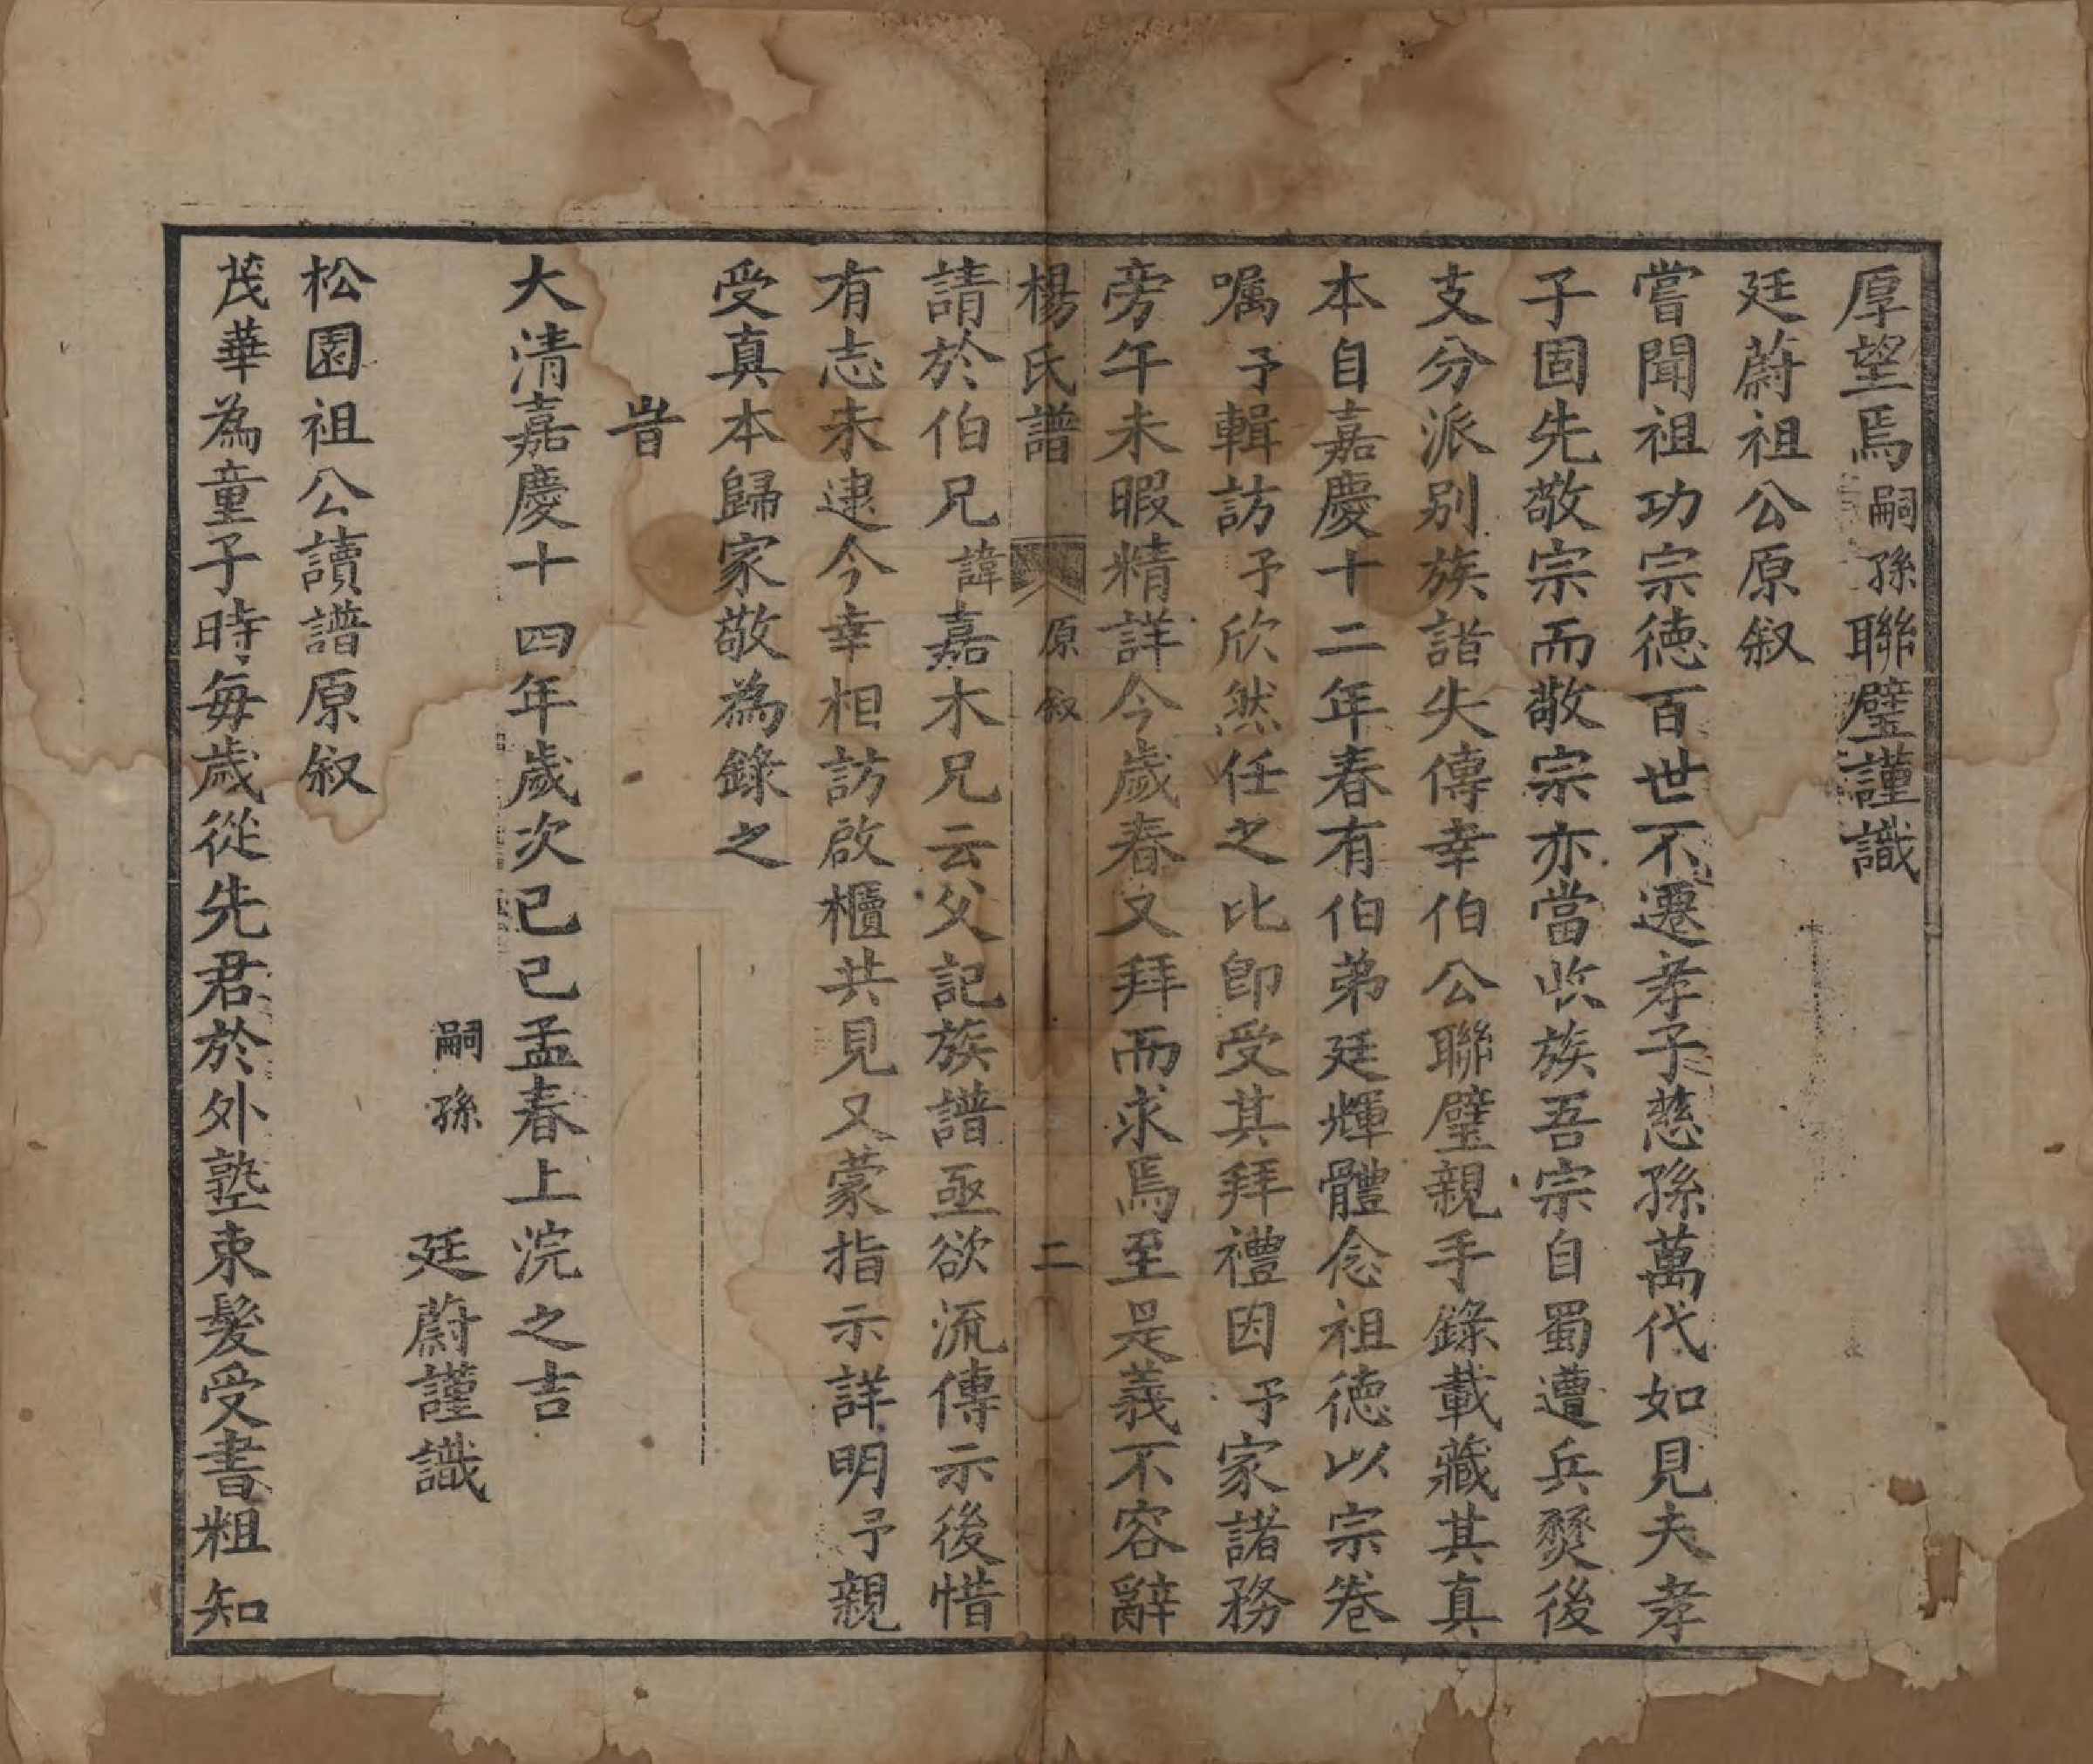 厚望焉嗣孫聯璧謹識
廷蔚祖公原叙
嘗聞祖功宗德百世不遷孝子慈孫萬代如見夫孝
子固先敬宗而敬宗亦當收族吾宗自蜀遭兵燹後
支分派別族譜失傳幸伯公聯璧親手錄載藏其真
本自嘉慶十二年春有伯弟廷輝體念祖德以宗卷
囑予輯訪予欣然任之比即受其拜禮因予家諸務
旁午未暇精詳今歲春又拜而求焉至是義不容辭
楊氏譜 原叙 二
請於伯兄諱嘉木兄云父記族譜亟欲流傳示後惜
有志未逮今幸相訪啟櫃共見又蒙指示詳明予親
受真本歸家敬為錄之
旹
大清嘉慶十四年歲次己巳孟春上浣之吉
嗣孫 廷蔚謹識
松園祖公讀譜原叙
茂華為童子時每歲從先君於外塾束髮受書粗知